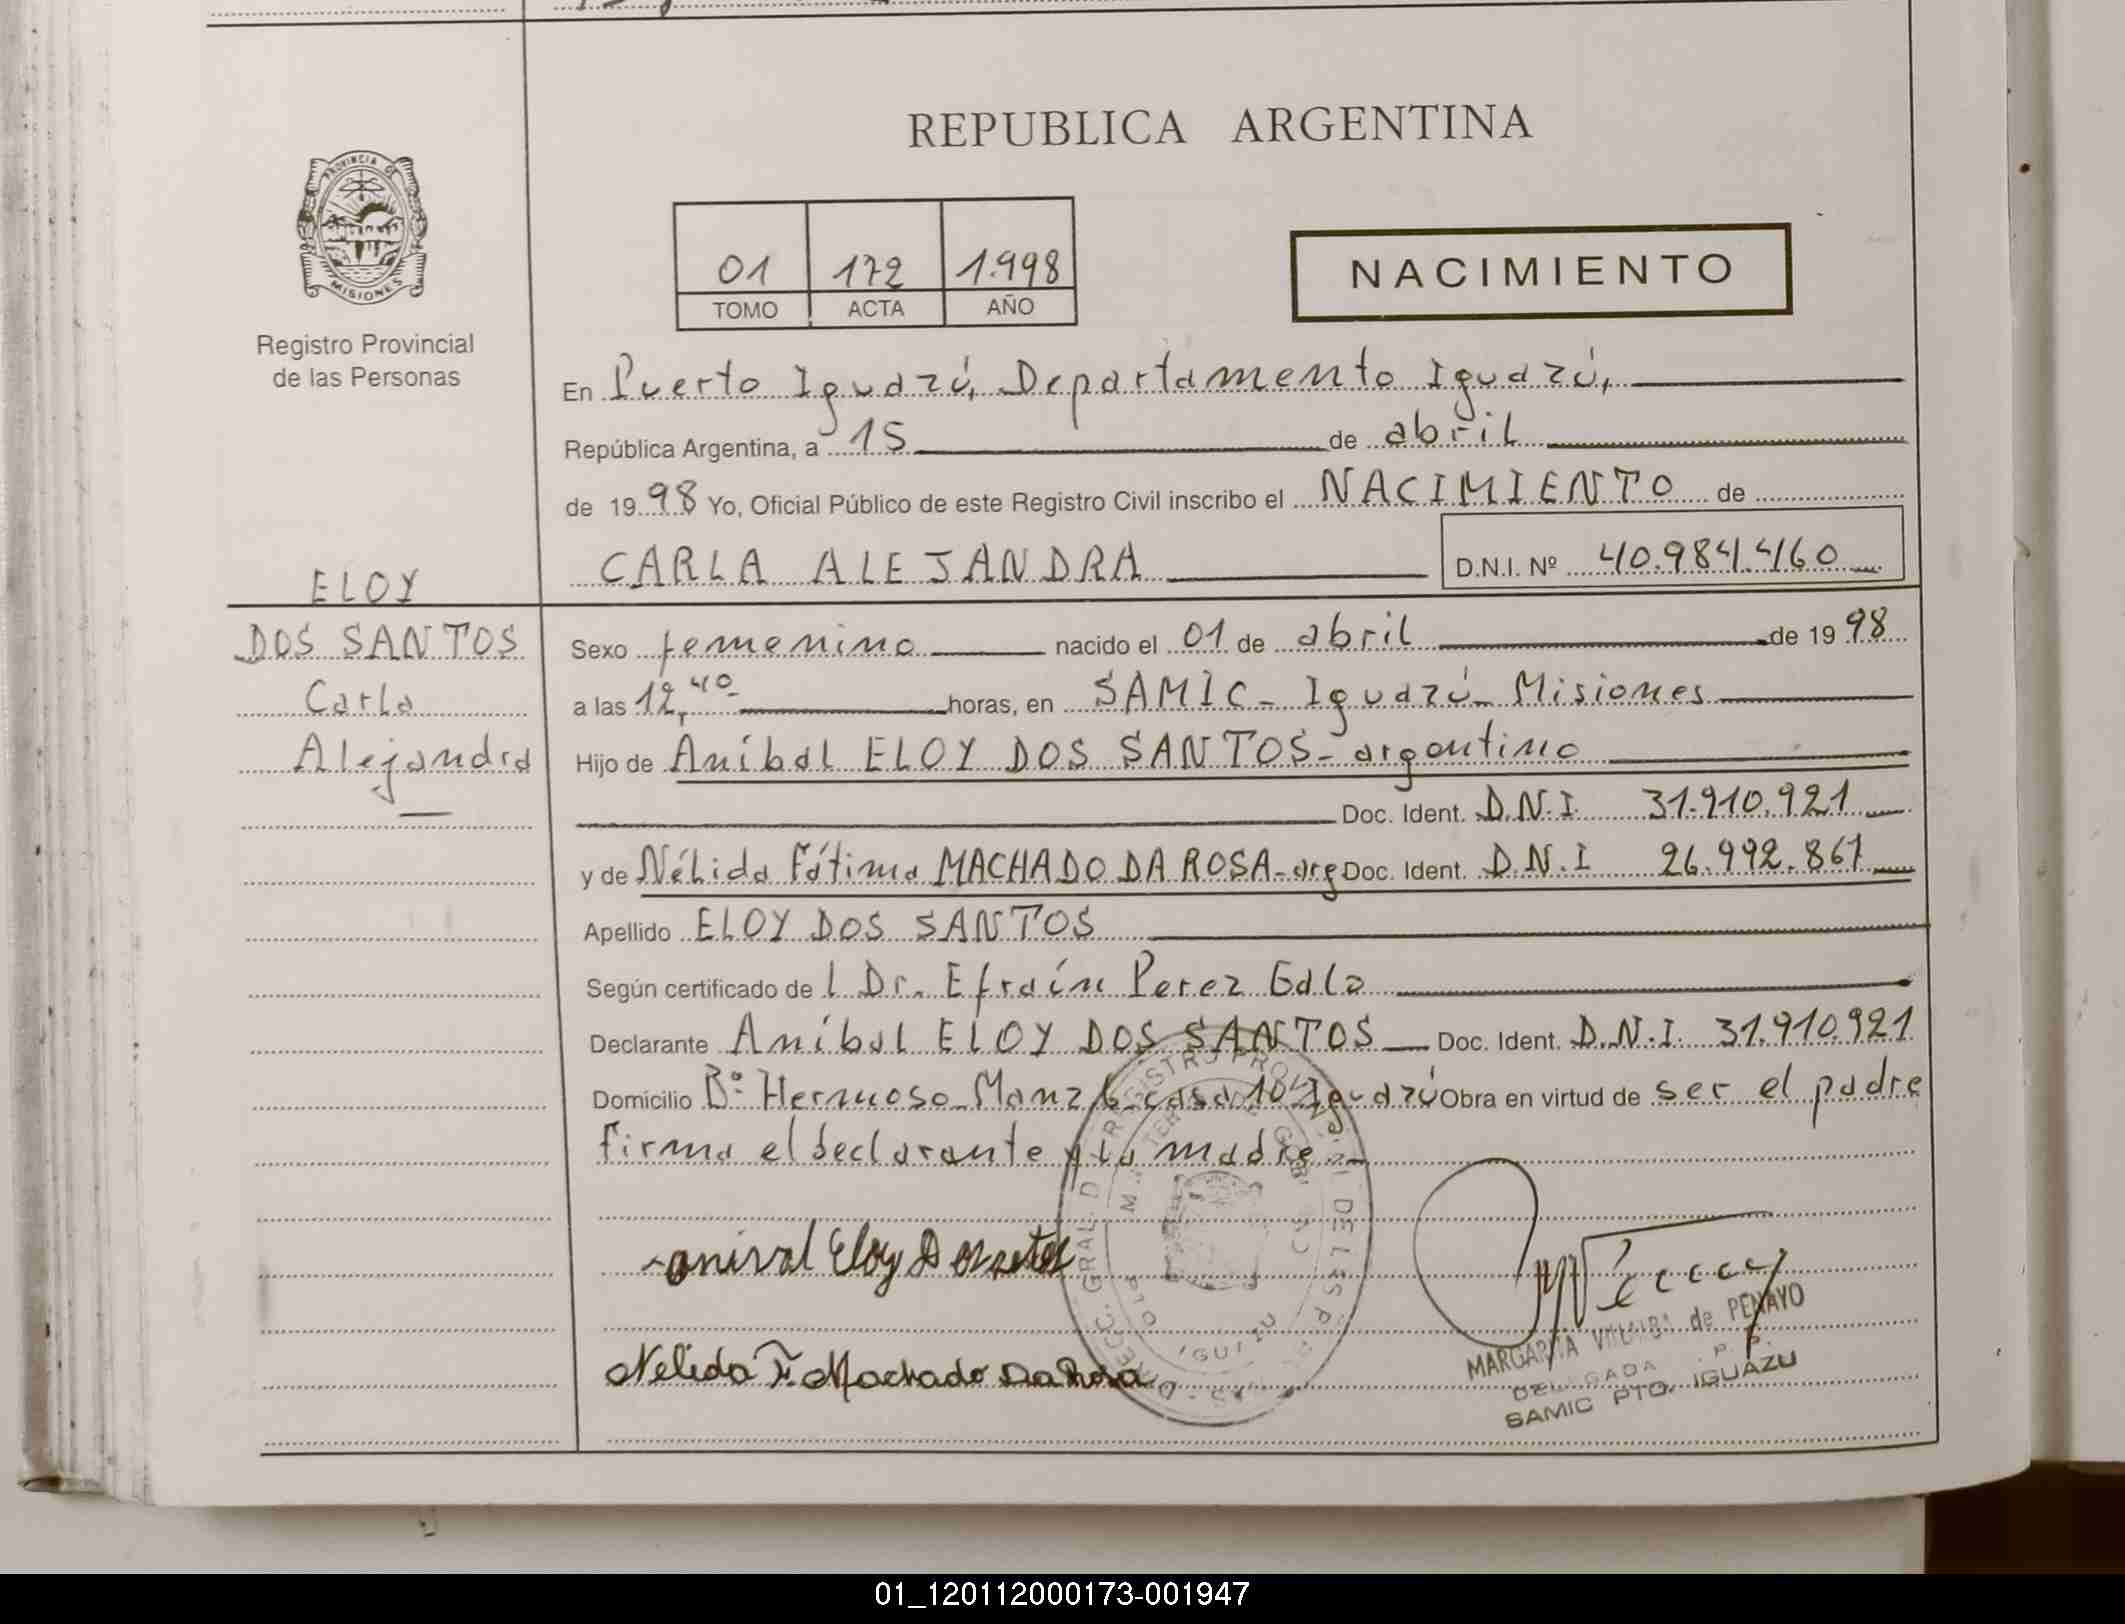 REPUBLICA ARGENTINA
PROVINCIA DE MISIONES
Registro Provincial
de las Personas
01 172 1.998
TOMO ACTA AÑO
NACIMIENTO
En Puerto Iguazú, Departamento Iguazú,
República Argentina, a 15 de abril
de 1998 Yo, Oficial Público de este Registro Civil inscribo el NACIMIENTO de
CARLA ALEJANDRA D.N.I. Nº 40.984.460
ELOY
DOS SANTOS
Carla
Alejandra
Sexo femenino nacido el 01 de abril de 1998
a las 12,40 horas, en SAMIC - Iguazú - Misiones
Hijo de Aníbal ELOY DOS SANTOS - argentino
Doc. Ident. D.N.I 31.910.921
y de Nélida Fátima MACHADO DA ROSA - arg Doc. Ident. D.N.I 26.992.861
Apellido ELOY DOS SANTOS
Según certificado de l Dr. Efraín Perez Gala
Declarante Aníbal ELOY DOS SANTOS Doc. Ident. D.N.I. 31.910.921
Domicilio Bº Hermoso Manz 6 casa 10 Iguazú Obra en virtud de ser el padre
firma el declarante y la madre.-
anival Eloy
Nelida F. Machado Da Rosa
MARGARITA de PENAYO
DELEGADA R. P.
SAMIC PTO. IGUAZU
01_120112000173-001947